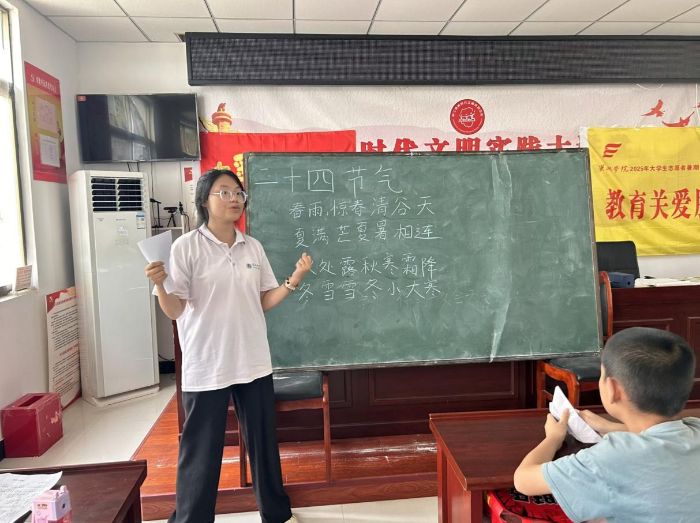 时代文明实践
2025年大学生志愿者暑期
教育关爱
二十四节气
春雨惊春清谷天
夏满芒夏暑相连
处露秋寒霜降
冬雪雪冬小大寒